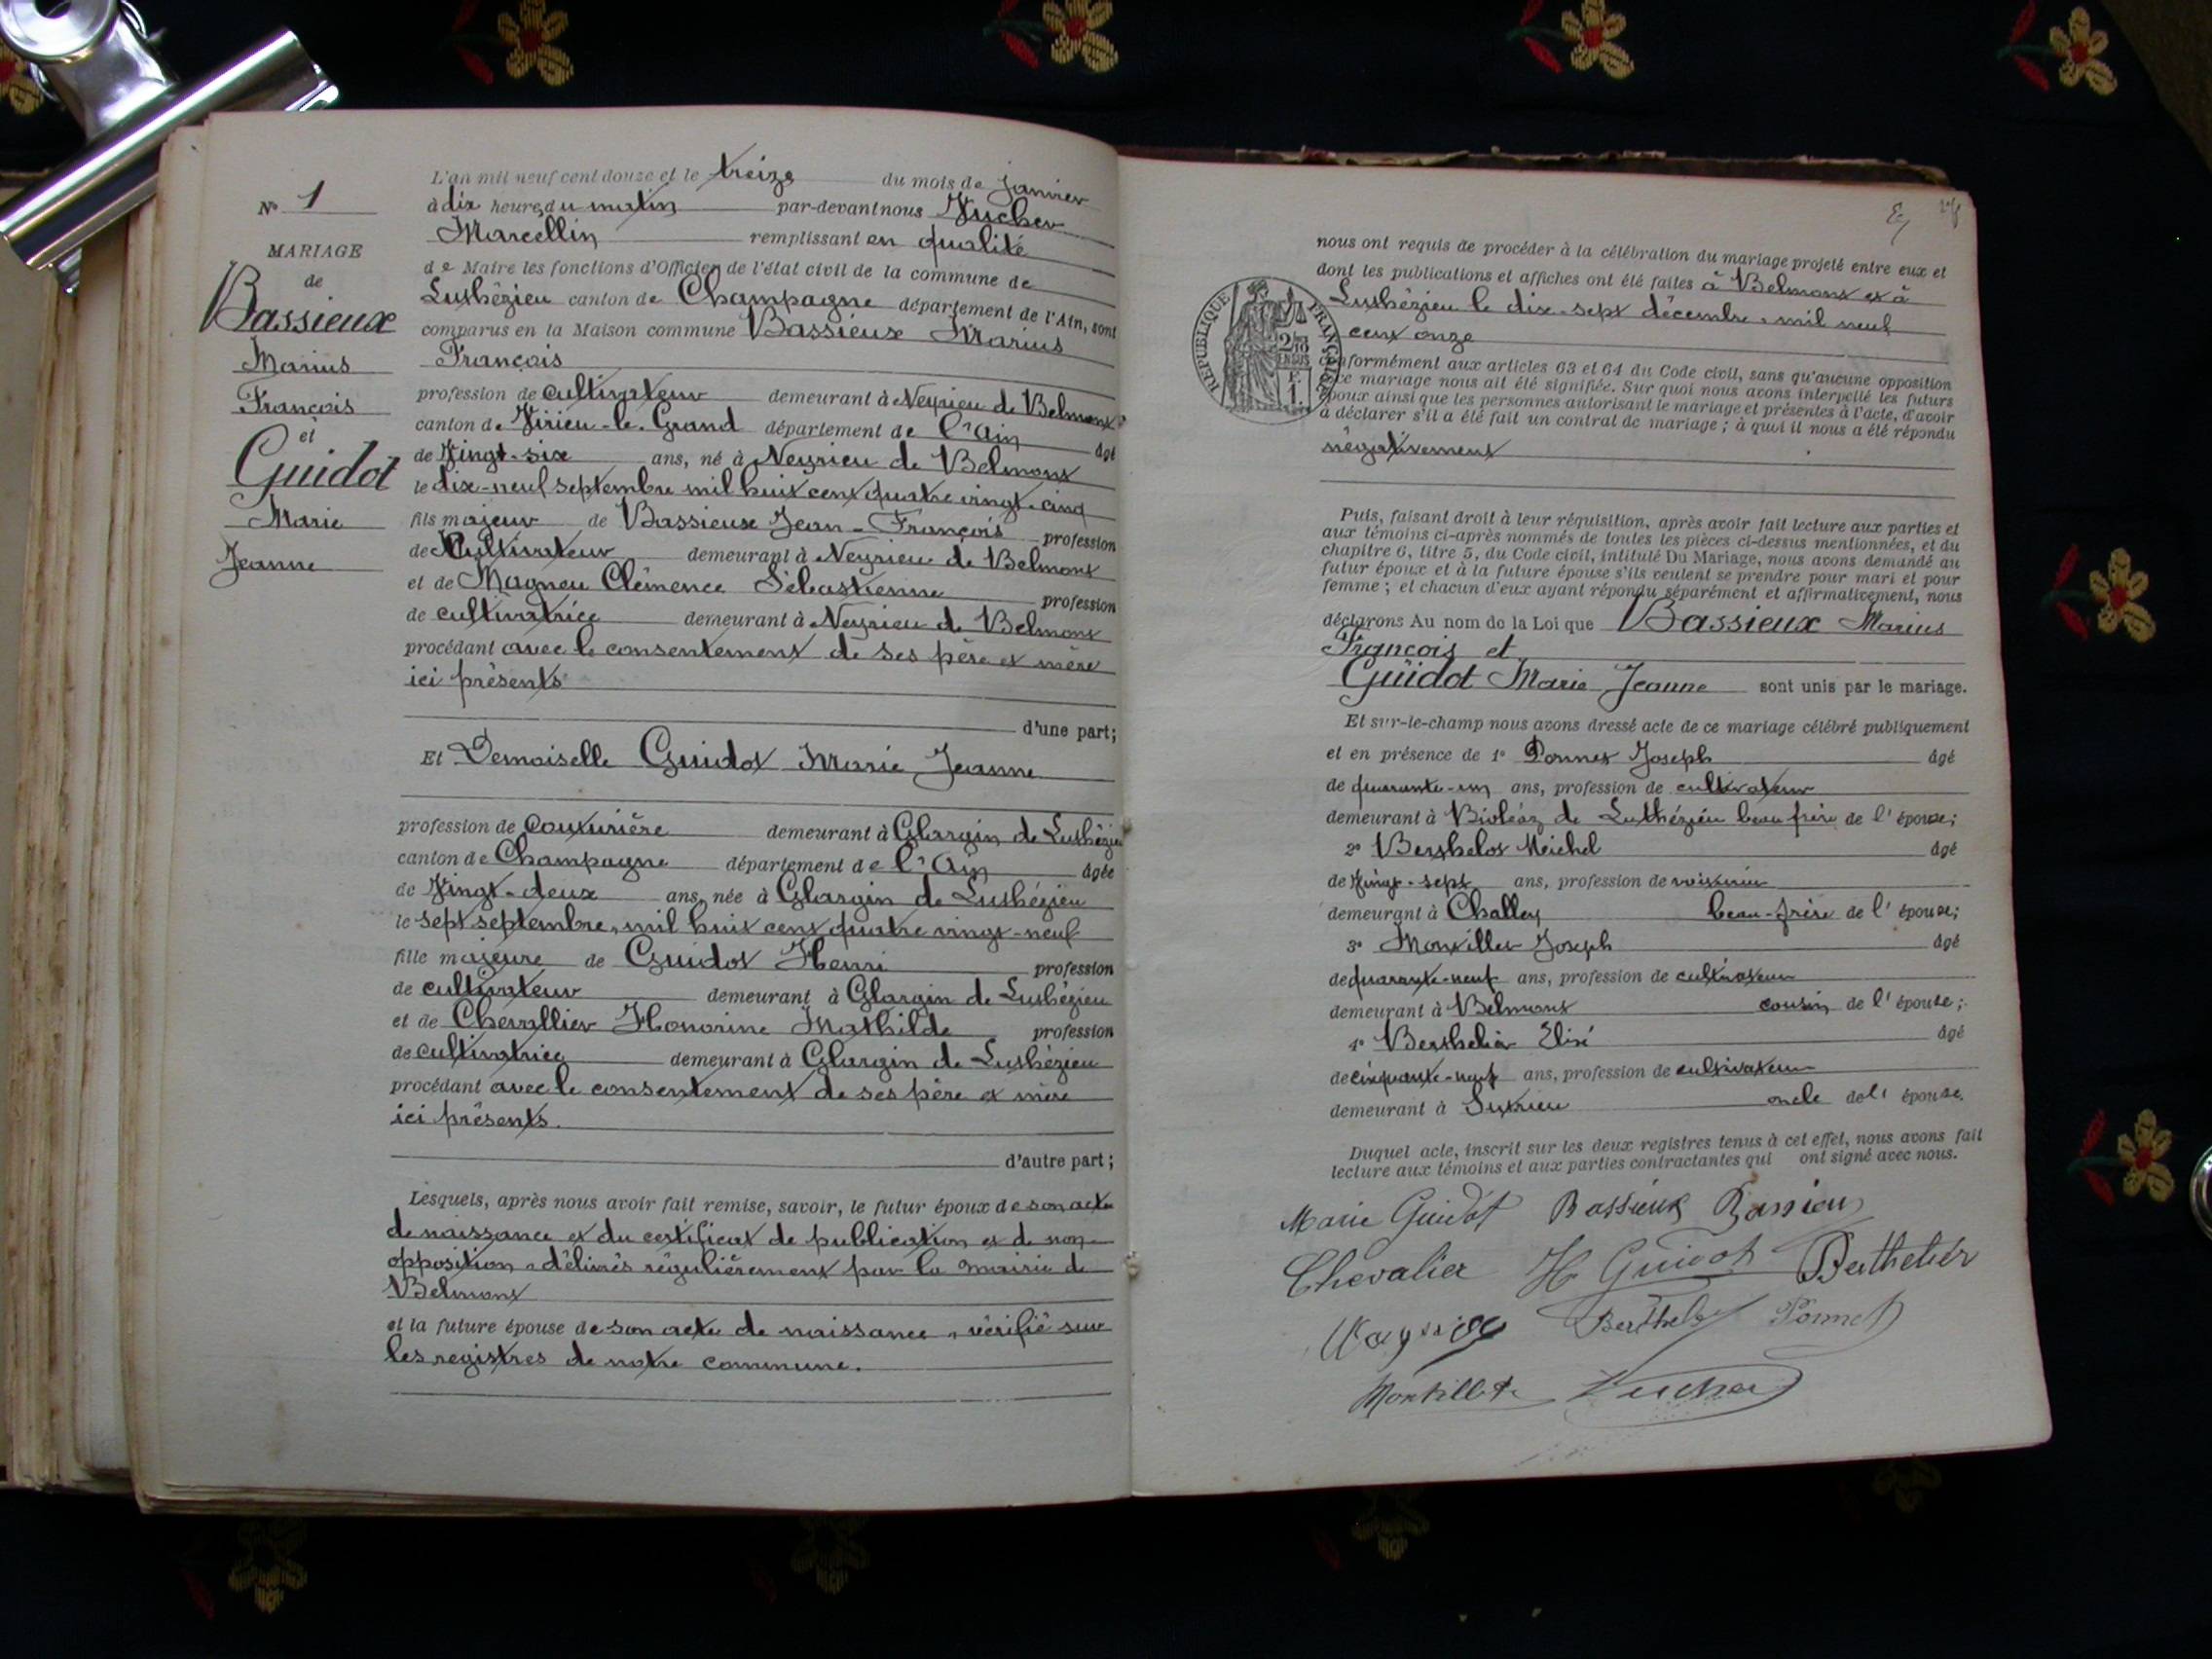 N° 1
MARIAGE
de
Bassieux
Marius
François
et
Guidot
Marie
Jeanne
L'an mil neuf cent douze et le treize du mois de janvier
à dix heures du matin par-devant nous Vucher
Marcellin remplissant en qualité
de Maire les fonctions d'Officier de l'état civil de la commune de
Luthézieu canton de Champagne département de l'Ain, sont
comparus en la Maison commune Bassieux Marius
François
profession de cultivateur demeurant à Neyrieu de Belmont
canton de Virieu-le-Grand département de l'Ain âgé
de Vingt-six ans, né à Neyrieu de Belmont
le dix-neuf septembre mil huit cent quatre vingt-cinq
fils majeur de Bassieux Jean-François profession
de Cultivateur demeurant à Neyrieu de Belmont
et de Magneu Clémence Sébastienne profession
de cultivatrice demeurant à Neyrieu de Belmont
procédant avec le consentement de ses père et mère
ici présents
d'une part;
Et Demoiselle Guidot Marie Jeanne
profession de Couturière demeurant à Glargin de Luthézieu
canton de Champagne département de l'Ain âgée
de Vingt-deux ans, née à Glargin de Luthézieu
le sept septembre, mil huit cent quatre vingt-neuf
fille majeure de Guidot Henri profession
de cultivateur demeurant à Glargin de Luthézieu
et de Chevallier Honorine Mathilde profession
de cultivatrice demeurant à Glargin de Luthézieu
procédant avec le consentement de ses père et mère
ici présents.
d'autre part;
Lesquels, après nous avoir fait remise, savoir, le futur époux de son acte
de naissance et du certificat de publication et de non-
opposition, délivrés régulièrement par la mairie de
Belmont
et la future épouse de son acte de naissance, vérifié sur
les registres de notre commune.
nous ont requis de procéder à la célébration du mariage projeté entre eux et
dont les publications et affiches ont été faites à Belmont et à
Luthézieu le dix-sept décembre, mil neuf
cent onze
RÉPUBLIQUE FRANÇAISE
conformément aux articles 63 et 64 du Code civil, sans qu'aucune opposition
ce mariage nous ait été signifiée. Sur quoi nous avons interpellé les futurs
époux ainsi que les personnes autorisant le mariage et présentes à l'acte, d'avoir
à déclarer s'il a été fait un contrat de mariage; à quoi il nous a été répondu
négativement
Puis, faisant droit à leur réquisition, après avoir fait lecture aux parties et
aux témoins ci-après nommés de toutes les pièces ci-dessus mentionnées, et du
chapitre 6, titre 5, du Code civil, intitulé Du Mariage, nous avons demandé au
futur époux et à la future épouse s'ils veulent se prendre pour mari et pour
femme; et chacun d'eux ayant répondu séparément et affirmativement, nous
déclarons Au nom de la Loi que Bassieux Marius
François et
Guidot Marie Jeanne sont unis par le mariage.
Et sur-le-champ nous avons dressé acte de ce mariage célébré publiquement
et en présence de 1° Ponnet Joseph âgé
de quarante-un ans, profession de cultivateur
demeurant à Bioléaz de Luthézieu beau frère de l'épouse;
2° Berthelot Michel âgé
de Vingt-sept ans, profession de
demeurant à Challey beau-frère de l'épouse;
3° Montillet Joseph âgé
de quarante-neuf ans, profession de cultivateur
demeurant à Belmont cousin de l'épouse;
4° Berthelier Elisé âgé
de cinquante-neuf ans, profession de cultivateur
demeurant à Sutrieu oncle de l'épouse.
Duquel acte, inscrit sur les deux registres tenus à cet effet, nous avons fait
lecture aux témoins et aux parties contractantes qui ont signé avec nous.
Marie Guidot Bassieux Bassieux
Chevalier H Guidot Berthelier
Berthelot Ponnet
Montillet Vucher